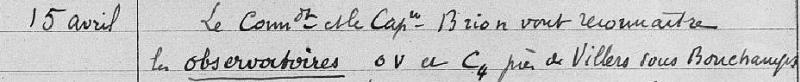 15 avril Le Comm^dt et le Cap^ne Brion vont reconnaître
les observatoires OV et C4 près de Villers sous Bouchamps